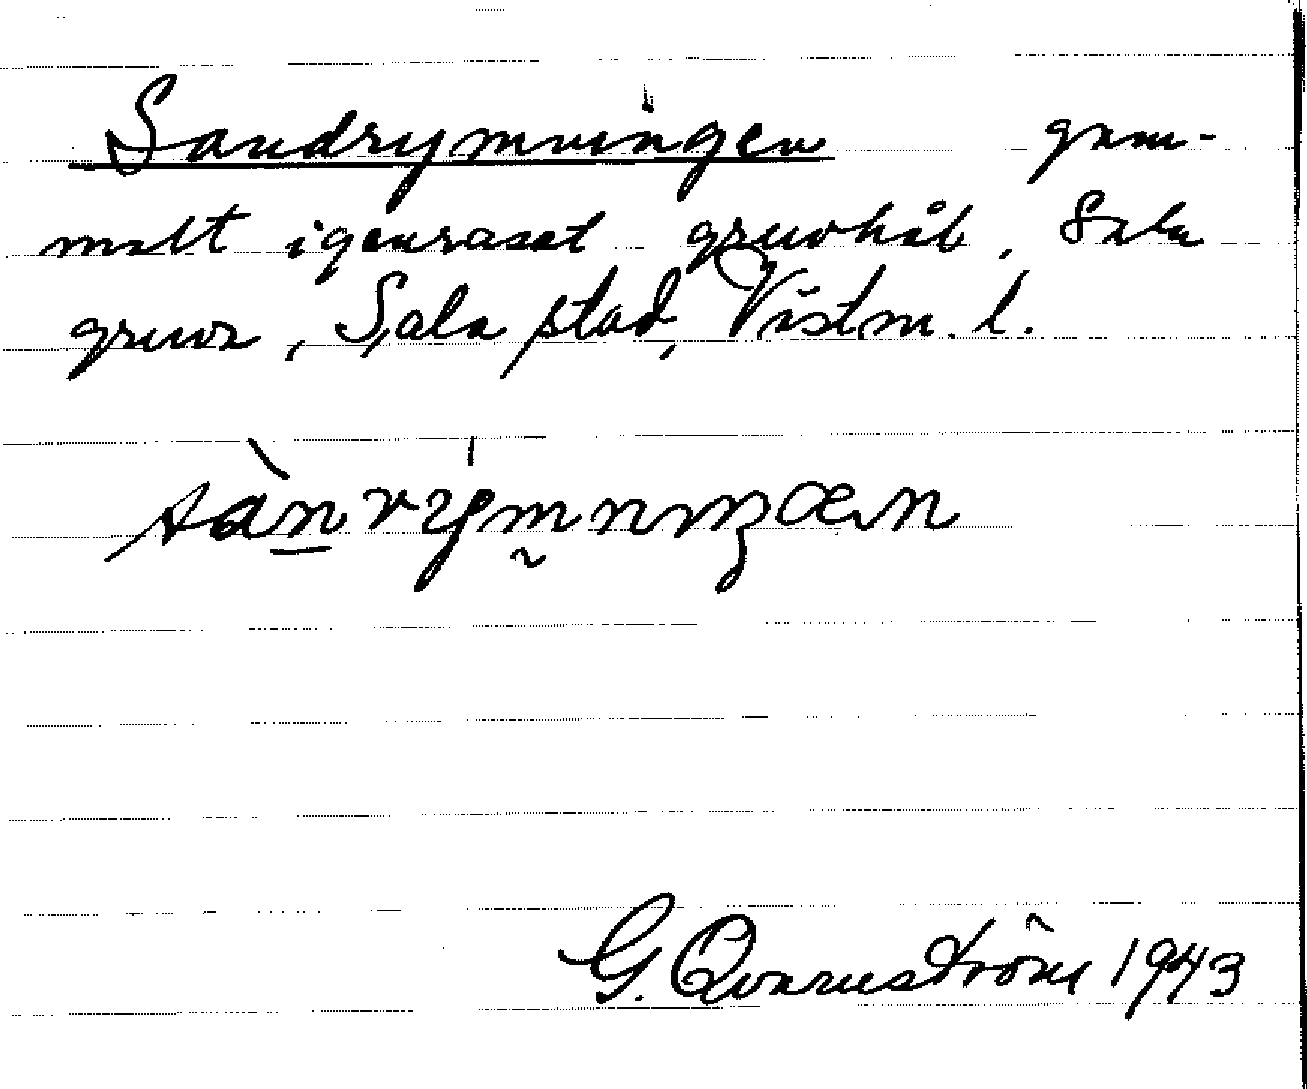 Sandrymningen gam-
malt igenrasat gruvhål, Sala
gruva, Sala stad, Västm. l.
G. Qvarnström 1943